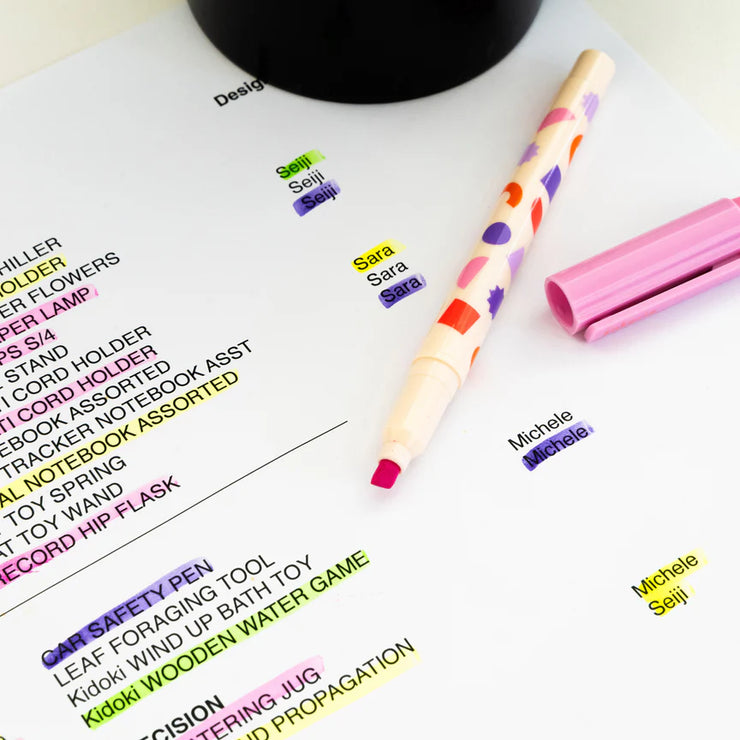 Seiji
Seiji
Seiji
Sara
Sara
Sara
FLOWERS
LAMP
S/4
STAND
CORD HOLDER
CORD HOLDER
ASSORTED
TRACKER NOTEBOOK ASST
NOTEBOOK ASSORTED
TOY SPRING
TOY WAND
RECORD HIP FLASK
Michele
Michele
Michele
Seiji
CAR SAFETY PEN
LEAF FORAGING TOOL
Kidoki WIND UP BATH TOY
Kidoki WOODEN WATER GAME
JUG
PROPAGATION